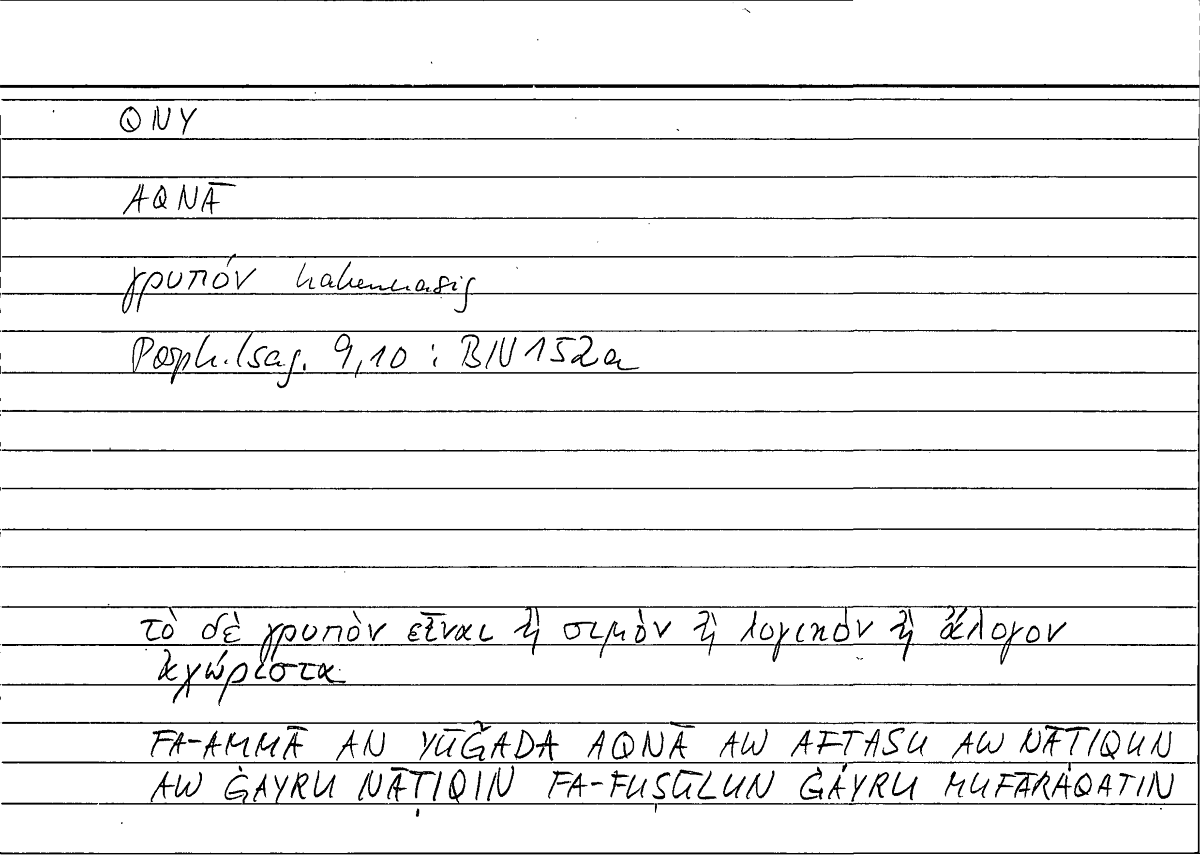 QNY
AQNĀ
γρυπόν hakennasig
Porph.Isag. 9,10 : BN 152a
τὸ δὲ γρυπὸν εἶναι ἢ σιμὸν ἢ λογικὸν ἢ ἄλογον
ἀχώριστα
FA-AMMĀ AN YŪǦADA AQNĀ AW AFṬASU AW NĀṬIQUN
AW ĠAYRU NĀṬIQIN FA-FUṢŪLUN ĠAYRU MUFĀRAQATIN